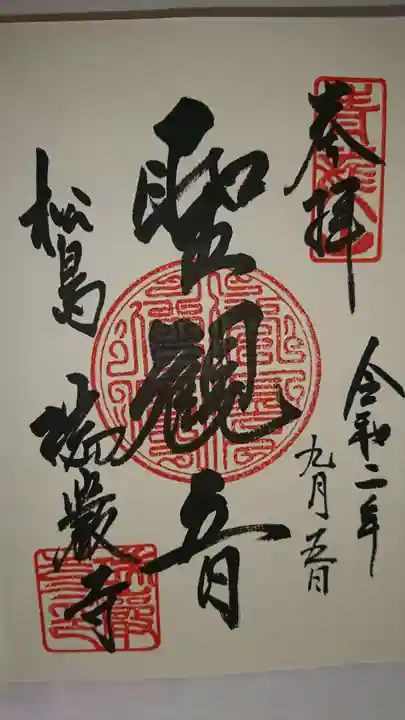 奉拝
令和二年
九月五日
聖觀音
松島 瑞巌寺